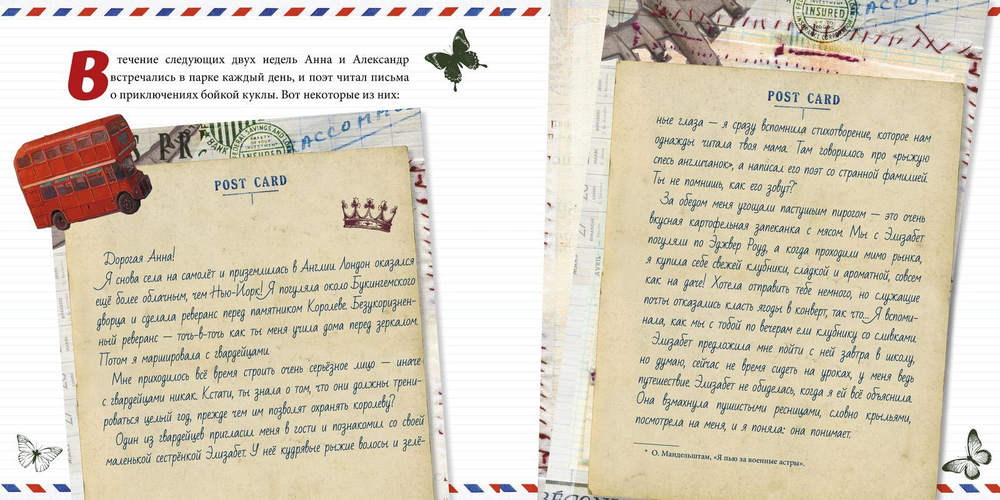 В течение следующих двух недель Анна и Александр
встречались в парке каждый день, и поэт читал письма
о приключениях бойкой куклы. Вот некоторые из них:
ACCOMM
FEDERAL SAVINGS AND LOAN
SAFETY
OF YOUR
INVESTMENT
INSURED
POST CARD
Дорогая Анна!
Я снова села на самолёт и приземлилась в Англии. Лондон оказался
ещё более облачным, чем Нью-Йорк! Я погуляла около Букингемского
дворца и сделала реверанс перед памятником Королеве. Безукоризнен-
ный реверанс — точь-в-точь как ты меня учила дома перед зеркалом.
Потом я маршировала с гвардейцами.
Мне приходилось всё время строить очень серьёзное лицо — иначе
с гвардейцами никак. Кстати, ты знала о том, что они должны трени-
роваться целый год, прежде чем им позволят охранять королеву?
Один из гвардейцев пригласил меня в гости и познакомил со своей
маленькой сестрёнкой Элизабет. У неё кудрявые рыжие волосы и зелё-
INSURED
ACCOM
POST CARD
ные глаза — я сразу вспомнила стихотворение, которое нам
однажды читала твоя мама. Там говорилось про «рыжую
спесь англичанок», а написал его поэт со странной фамилией.
Ты не помнишь, как его зовут?*
За обедом меня угощали пастушьим пирогом — это очень
вкусная картофельная запеканка с мясом. Мы с Элизабет
погуляли по Эджвер Роуд, а когда проходили мимо рынка,
я купила себе свежей клубники, сладкой и ароматной, совсем
как на даче! Хотела отправить тебе немного, но служащие
почты отказались класть ягоды в конверт, так что... Я вспоми-
нала, как мы с тобой по вечерам ели клубнику со сливками.
Элизабет предложила мне пойти с ней завтра в школу,
но думаю, сейчас не время сидеть на уроках, у меня ведь
путешествие. Элизабет не обиделась, когда я ей всё объяснила.
Она взмахнула пушистыми ресницами, словно крыльями,
посмотрела на меня, и я поняла: она понимает.
* О. Мандельштам, «Я пью за военные астры».